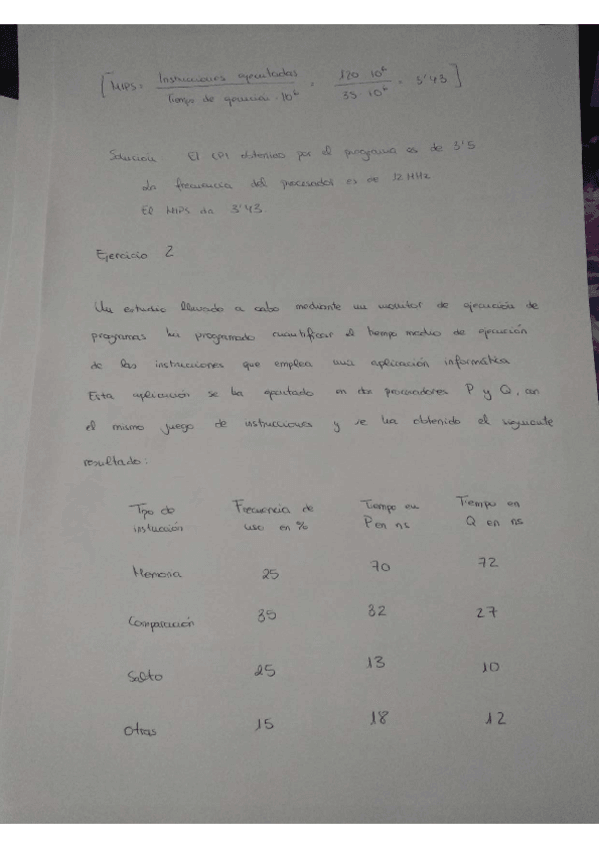 [MIPS = Instrucciones ejecutadas / Tiempo de ejecución · 10⁶ = 120 · 10⁶ / 35 · 10⁶ = 3'43]
Solución El CPI obtenido por el programa es de 3'5
La frecuencia del procesador es de 12 MHz
El MIPS da 3'43
Ejercicio 2
Un estudio llevado a cabo mediante un monitor de ejecución de
programas ha programado cuantificar el tiempo medio de ejecución
de las instrucciones que emplea una aplicación informática
Esta aplicación se ha ejecutado en dos procesadores P y Q, con
el mismo juego de instrucciones y se ha obtenido el siguiente
resultado:
Tipo de instrucción Frecuencia de uso en % Tiempo en P en ns Tiempo en Q en ns
Memoria 25 70 72
Comparación 35 32 27
Salto 25 13 10
Otras 15 18 12